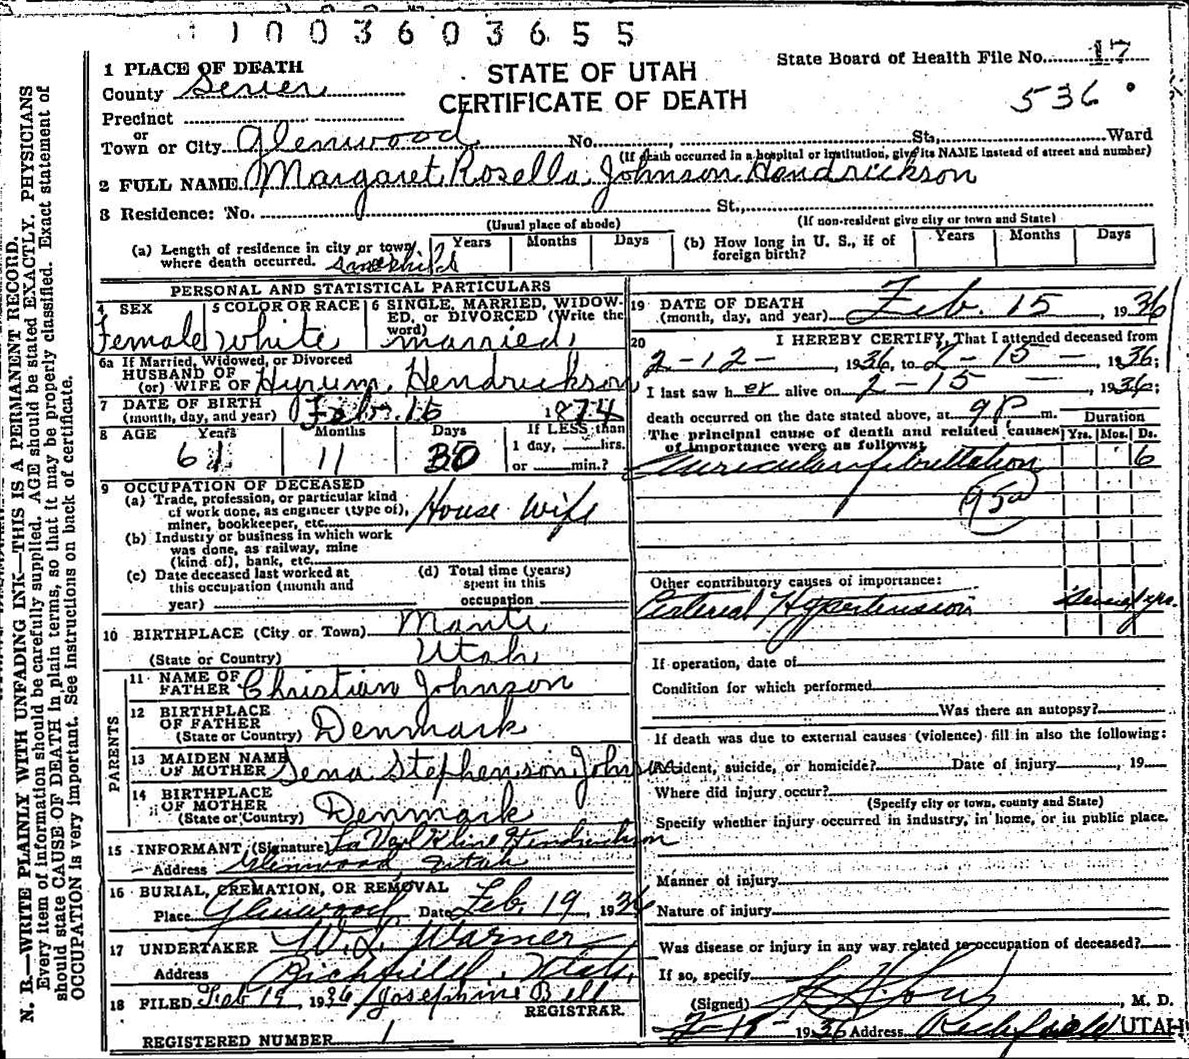 1003603655
State Board of Health File No. 17
536
STATE OF UTAH
CERTIFICATE OF DEATH
1 PLACE OF DEATH
County Sevier
Precinct
or
Town or City Glenwood No. St., Ward
(If death occurred in a hospital or institution, give its NAME instead of street and number)
2 FULL NAME Margaret Rosella Johnson Hendrickson
3 Residence: No. St.,
(Usual place of abode) (If non-resident give city or town and State)
(a) Length of residence in city or town where death occurred. since child Years Months Days (b) How long in U. S., if of foreign birth? Years Months Days
PERSONAL AND STATISTICAL PARTICULARS
4 SEX Female
5 COLOR OR RACE white
6 SINGLE, MARRIED, WIDOWED, or DIVORCED (Write the word) married
6a If Married, Widowed, or Divorced
HUSBAND OF
(or) WIFE OF Hyrum Hendrickson
7 DATE OF BIRTH
(month, day, and year) Feb. 16 1874
8 AGE Years Months Days If LESS than
61 11 30 1 day, hrs.
or min.?
9 OCCUPATION OF DECEASED
(a) Trade, profession, or particular kind
of work done, as engineer (type of),
miner, bookkeeper, etc. House Wife
(b) Industry or business in which work
was done, as railway, mine
(kind of), bank, etc.
(c) Date deceased last worked at
this occupation (month and
year)
(d) Total time (years)
spent in this
occupation
10 BIRTHPLACE (City or Town) Manti
(State or Country) Utah
PARENTS
11 NAME OF
FATHER Christian Johnson
12 BIRTHPLACE
OF FATHER
(State or Country) Denmark
13 MAIDEN NAME
OF MOTHER Sena Stephenson Johnson
14 BIRTHPLACE
OF MOTHER
(State or Country) Denmark
15 INFORMANT (Signature) Hendrickson
Address Glenwood Utah
16 BURIAL, CREMATION, OR REMOVAL
Place Glenwood Date Feb. 19 1936
17 UNDERTAKER W. L. Warner
Address Richfield, Utah
18 FILED Feb 19 1936 Josephine Bell
REGISTRAR.
REGISTERED NUMBER 1
19 DATE OF DEATH
(month, day, and year) Feb. 15, 1936
20 I HEREBY CERTIFY, That I attended deceased from
2-12-, 1936, to 2-15-, 1936;
I last saw her alive on 2-15-, 1936;
death occurred on the date stated above, at 9P m.
The principal cause of death and related causes
of importance were as follows: Duration
Yrs. Mos. Ds.
Auricular fibrillation 6
95a
Other contributory causes of importance:
Arterial Hypertension Several yrs.
If operation, date of
Condition for which performed
Was there an autopsy?
If death was due to external causes (violence) fill in also the following:
Accident, suicide, or homicide? Date of injury , 19
Where did injury occur?
(Specify city or town, county and State)
Specify whether injury occurred in industry, in home, or in public place.
Manner of injury
Nature of injury
Was disease or injury in any way related to occupation of deceased?
If so, specify
(Signed) , M. D.
1936 Address Richfield UTAH
N. B.—WRITE PLAINLY WITH UNFADING INK—THIS IS A PERMANENT RECORD.
Every item of information should be carefully supplied. AGE should be stated EXACTLY. PHYSICIANS
should state CAUSE OF DEATH in plain terms, so that it may be properly classified. Exact statement of
OCCUPATION is very important. See instructions on back of certificate.